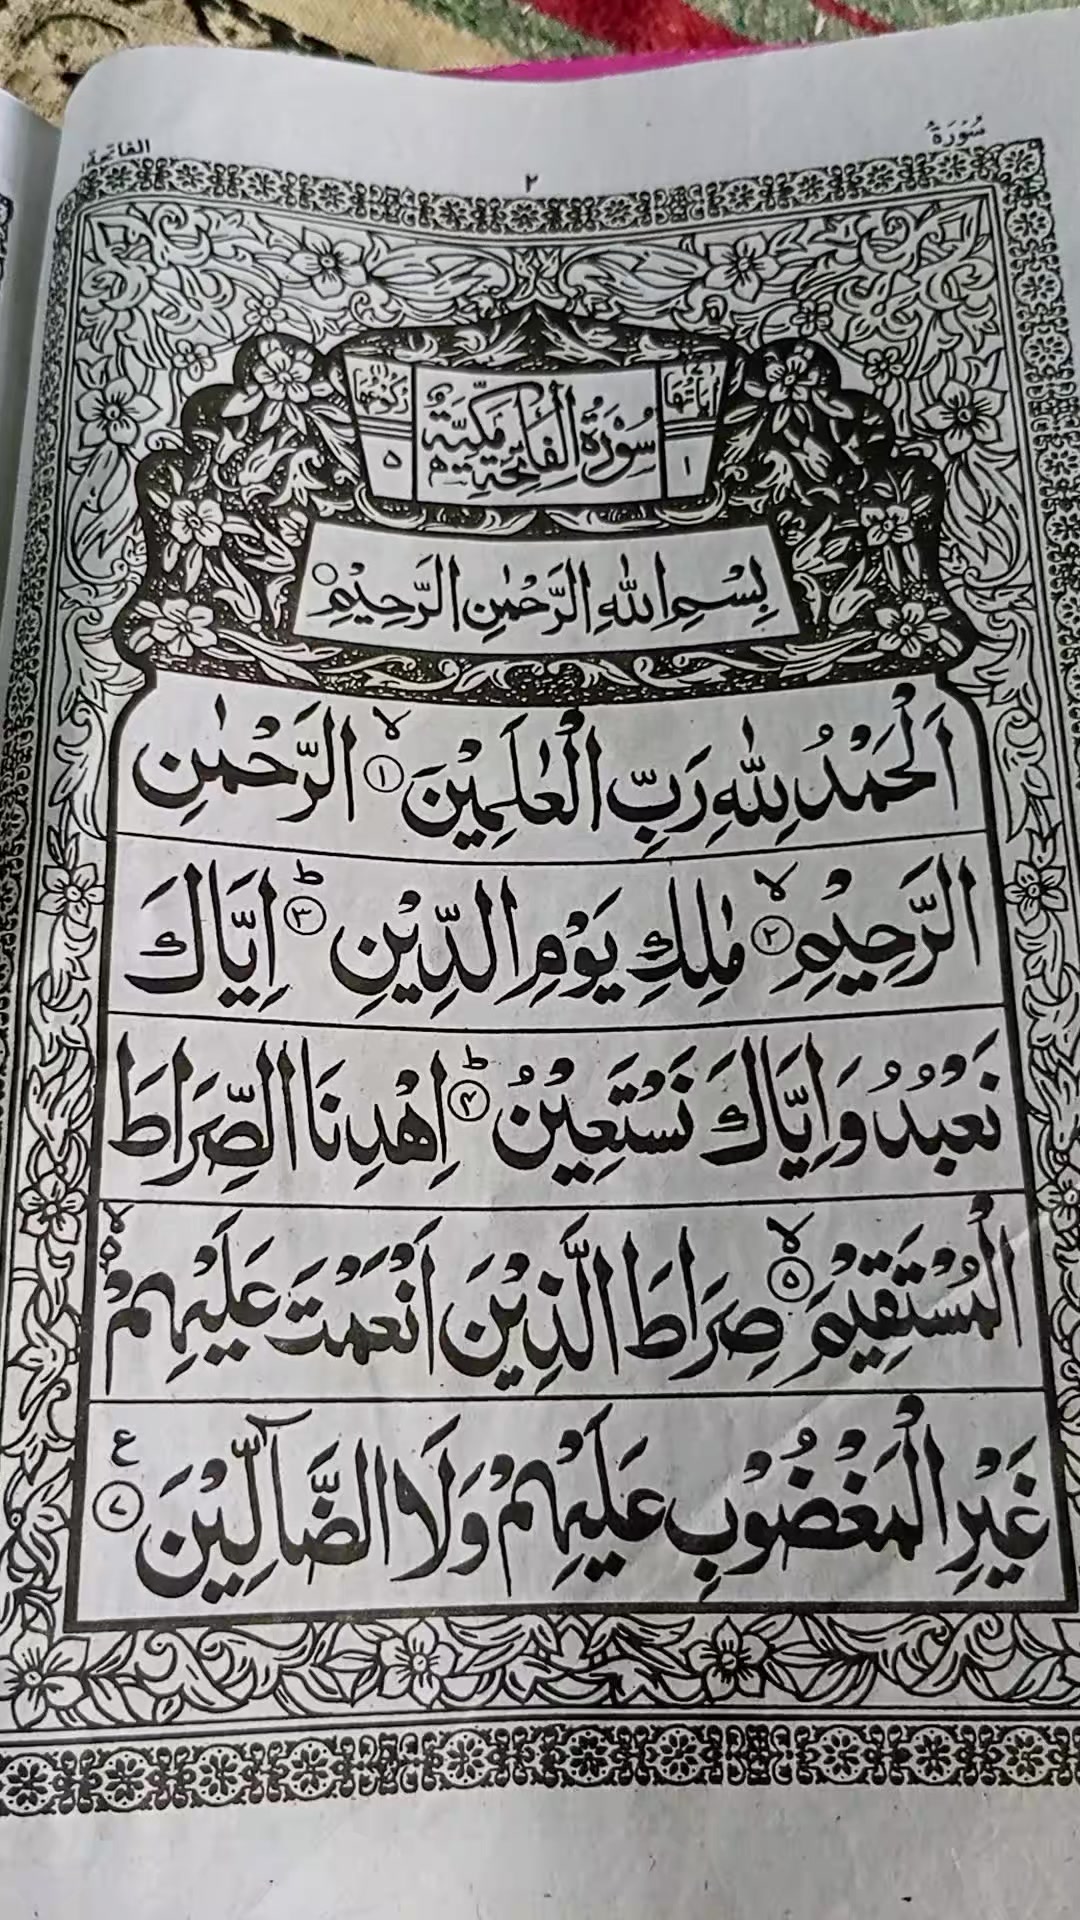 سُوْرَةُ
٢
الفاتحة
اٰيَاتُهَا
١
سُوْرَةُ الْفَاتِحَةِ مَكِّيَّةٌ
رُكُوْعُهَا
٥
بِسْمِ اللّٰهِ الرَّحْمٰنِ الرَّحِيْمِ
اَلْحَمْدُ لِلّٰهِ رَبِّ الْعٰلَمِيْنَ ۙ﴿١﴾ الرَّحْمٰنِ
الرَّحِيْمِ ۙ﴿٢﴾ مٰلِكِ يَوْمِ الدِّيْنِ ؕ﴿٣﴾ اِيَّاكَ
نَعْبُدُ وَاِيَّاكَ نَسْتَعِيْنُ ؕ﴿۴﴾ اِهْدِنَا الصِّرَاطَ
الْمُسْتَقِيْمَ ۙ﴿٥﴾ صِرَاطَ الَّذِيْنَ اَنْعَمْتَ عَلَيْهِمْ
غَيْرِ الْمَغْضُوْبِ عَلَيْهِمْ وَلَا الضَّآلِّيْنَ ﴿٧﴾ ع